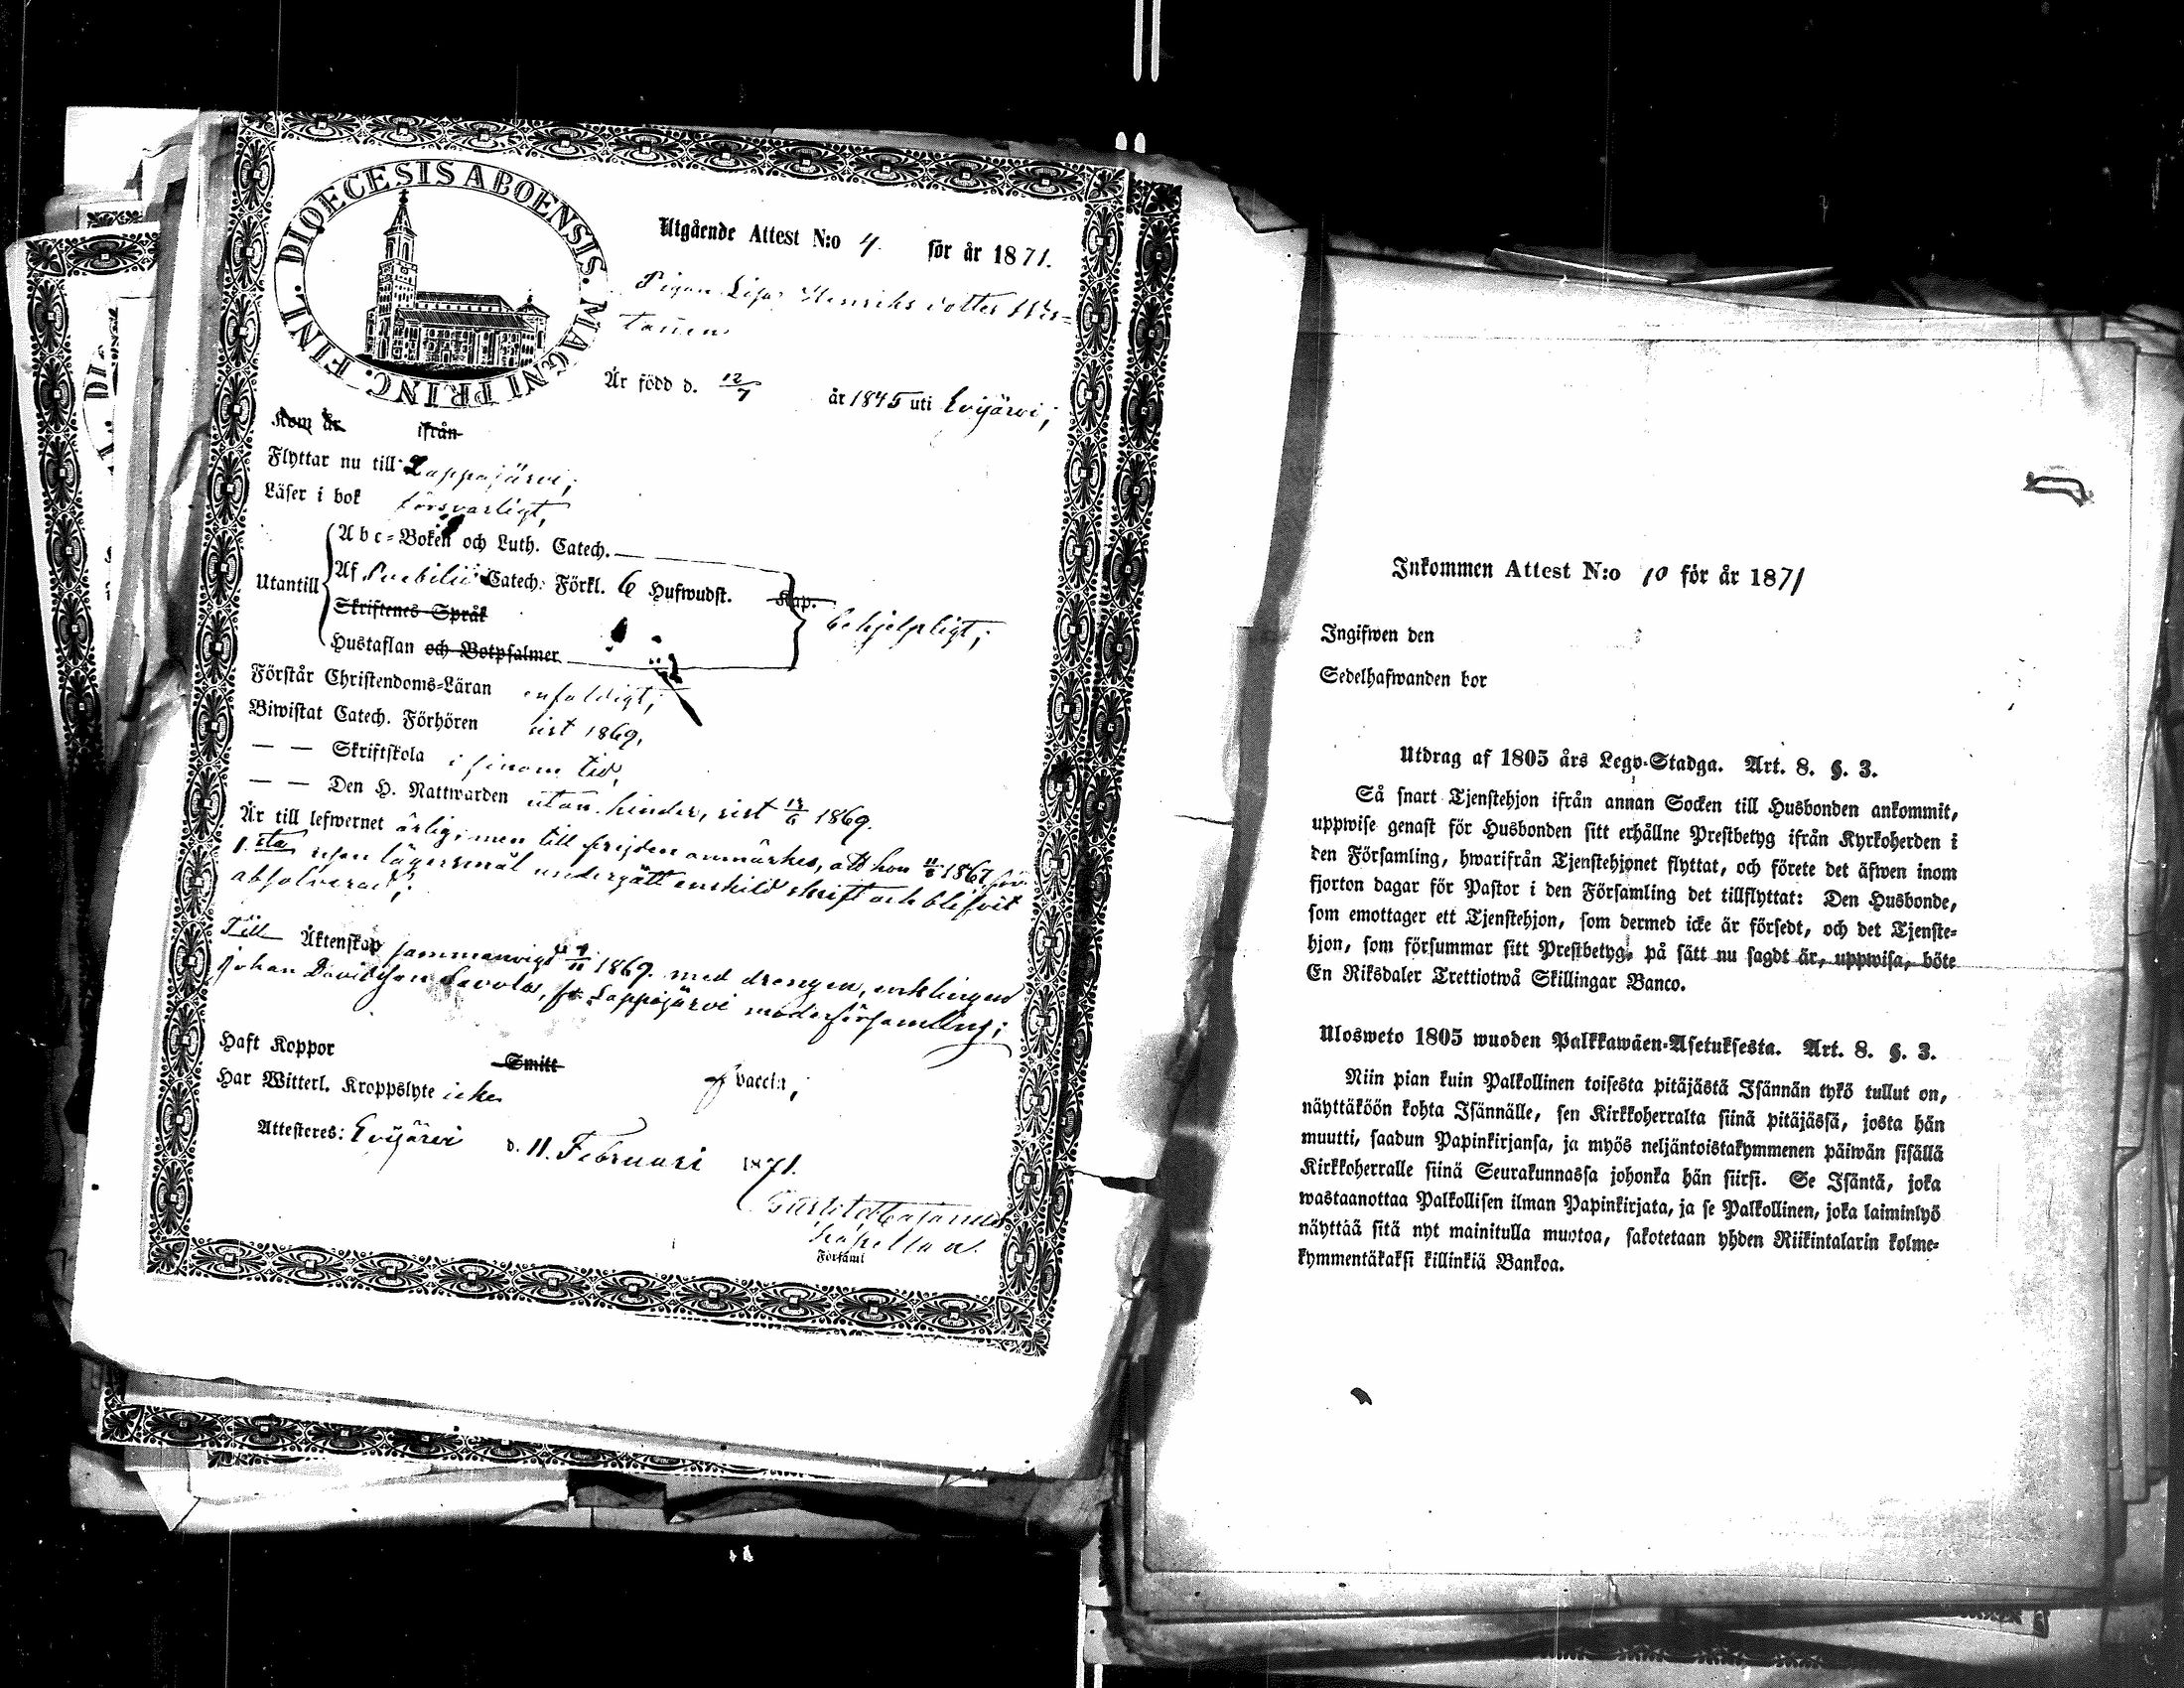 DIOECESIS ABOENSIS. MAGNI PRINC. FINL.
Utgående Attest N:o 4. för år 1871.
Pigan Lisa Henriks dotter
Är född d. 12/7 år 1845 uti Evijärvi;
Kom år ifrån
Flyttar nu till Lappajärvi;
Läser i bok försvarligt,
Abc-Boken och Luth. Catech.
Utantill
Af Svebilii Catech: Förkl. 6 Hufwudst. Kap.
behjelpligt;
Skriftenes Språk
Hustaflan och Botpsalmer
Förstår Christendoms-Läran enfaldigt;
Biwistat Catech. Förhören sist 1869,
— — Skriftskola i sinom tid,
— — Den H. Nattwarden utan hinder, sist 13/6 1869.
Är till lefwernet ärlig; men till frejden anmärkes, att hon 11/8 1867 för
1:sta resan lägersmål undergått enskild skrift och blifvit
absolverad;
Till Äktenskap sammanvigd 7/11 1869. med drengen, enklingen
Johan Davidsson Savola, fr. Lappajärvi moderförsamling;
Haft Koppor Smitt af vaccin;
Har Witterl. Kroppslyte icke
Attesteres: Evijärvi d. 11. Februari 1871.
Kapellan.
Församl
Inkommen Attest N:o 10 för år 1871
Ingifwen den
Sedelhafwanden bor
Utdrag af 1805 års Lego-Stadga. Art. 8. §. 3.
Så snart Tjenstehjon ifrån annan Socken till Husbonden ankommit,
uppwise genast för Husbonden sitt erhållne Prestbetyg ifrån Kyrkoherden i
den Församling, hwarifrån Tjenstehjonet flyttat, och förete det äfwen inom
fjorton dagar för Pastor i den Församling det tillflyttat: Den Husbonde,
som emottager ett Tjenstehjon, som dermed icke är försedt, och det Tjenste-
hjon, som försummar sitt Prestbetyg, på sätt nu sagdt är, uppwisa, böte
En Riksdaler Trettiotwå Skillingar Banco.
Ulosweto 1805 wuoden Palkkawäen-Asetuksesta. Art. 8. §. 3.
Niin pian kuin Palkollinen toisesta pitäjästä Isännän tykö tullut on,
näyttäköön kohta Isännälle, sen Kirkkoherralta siinä pitäjässä, josta hän
muutti, saadun Papinkirjansa, ja myös neljäntoistakymmenen päiwän sisällä
Kirkkoherralle siinä Seurakunnassa johonka hän siirsi. Se Isäntä, joka
wastaanottaa Palkollisen ilman Papinkirjata, ja se Palkollinen, joka laiminlyö
näyttää sitä nyt mainitulla muotoa, sakotetaan yhden Riikintalarin kolme-
kymmentäkaksi killinkiä Bankoa.